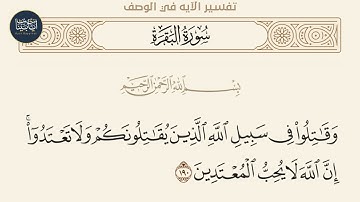 تفسير الآيه في الوصف
سُورَةُ الْبَقَرَةِ
بِسْمِ اللَّهِ الرَّحْمَٰنِ الرَّحِيمِ
وَقَاتِلُوا۟ فِى سَبِيلِ ٱللَّهِ ٱلَّذِينَ يُقَاتِلُونَكُمْ وَلَا تَعْتَدُوٓا۟ۚ
إِنَّ ٱللَّهَ لَا يُحِبُّ ٱلْمُعْتَدِينَ ١٩٠